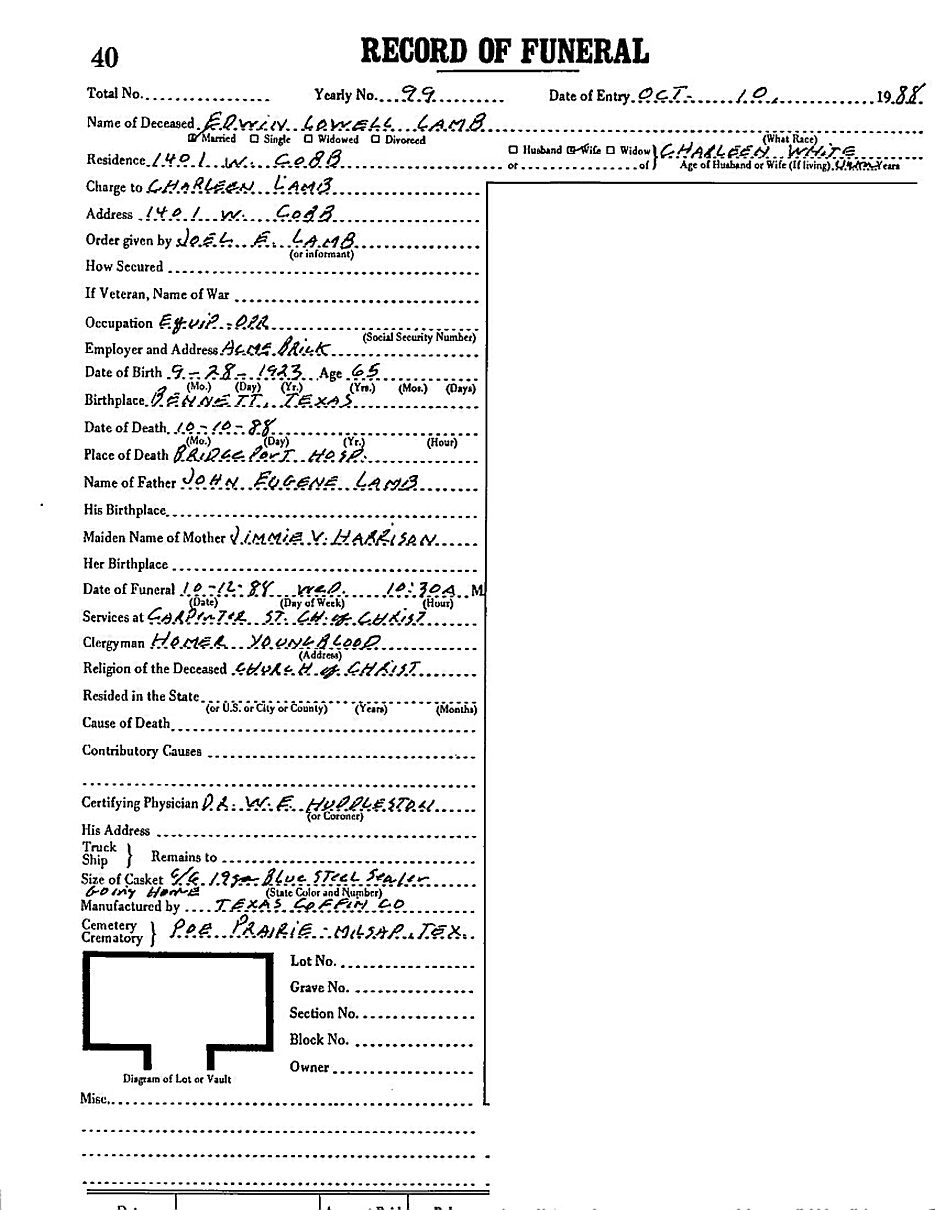 40 RECORD OF FUNERAL
Total No. Yearly No. 99 Date of Entry OCT. 10, 1988
Name of Deceased EDWIN LOWELL LAMB
Married Single Widowed Divorced (What Race)
Husband Wife Widow CHARLEEN WHITE
Residence 1401 W. COBB or of Age of Husband or Wife (If living) Years
Charge to CHARLEEN LAMB
Address 1401 W. COBB
Order given by JOEL E. LAMB
(or informant)
How Secured
If Veteran, Name of War
Occupation EQUIP-OPR
(Social Security Number)
Employer and Address ACME BRICK
Date of Birth 9-28-1923 Age 65
(Mo.) (Day) (Yr.) (Yrs.) (Mos.) (Days)
Birthplace BENNETT, TEXAS
Date of Death 10-10-88
(Mo.) (Day) (Yr.) (Hour)
Place of Death BRIDGEPORT HOSP.
Name of Father JOHN EUGENE LAMB
His Birthplace
Maiden Name of Mother JIMMIE V. HARRISON
Her Birthplace
Date of Funeral 10-12-88 WED. 10:30A M
(Date) (Day of Week) (Hour)
Services at CARPINTER ST. CH. of CHRIST
Clergyman HOMER YOUNGBLOOD
(Address)
Religion of the Deceased CHURCH of CHRIST
Resided in the State
(or U.S. or City or County) (Years) (Months)
Cause of Death
Contributory Causes
Certifying Physician DR. W. E. HUDDLESTON
(or Coroner)
His Address
Truck
Ship } Remains to
Size of Casket 6/6 Blue Steel Sealer
GOING HOME (State Color and Number)
Manufactured by TEXAS COFFIN CO
Cemetery
Crematory } POE PRAIRIE - MILSAP, TEX.
Lot No.
Grave No.
Section No.
Block No.
Owner
Diagram of Lot or Vault
Misc.